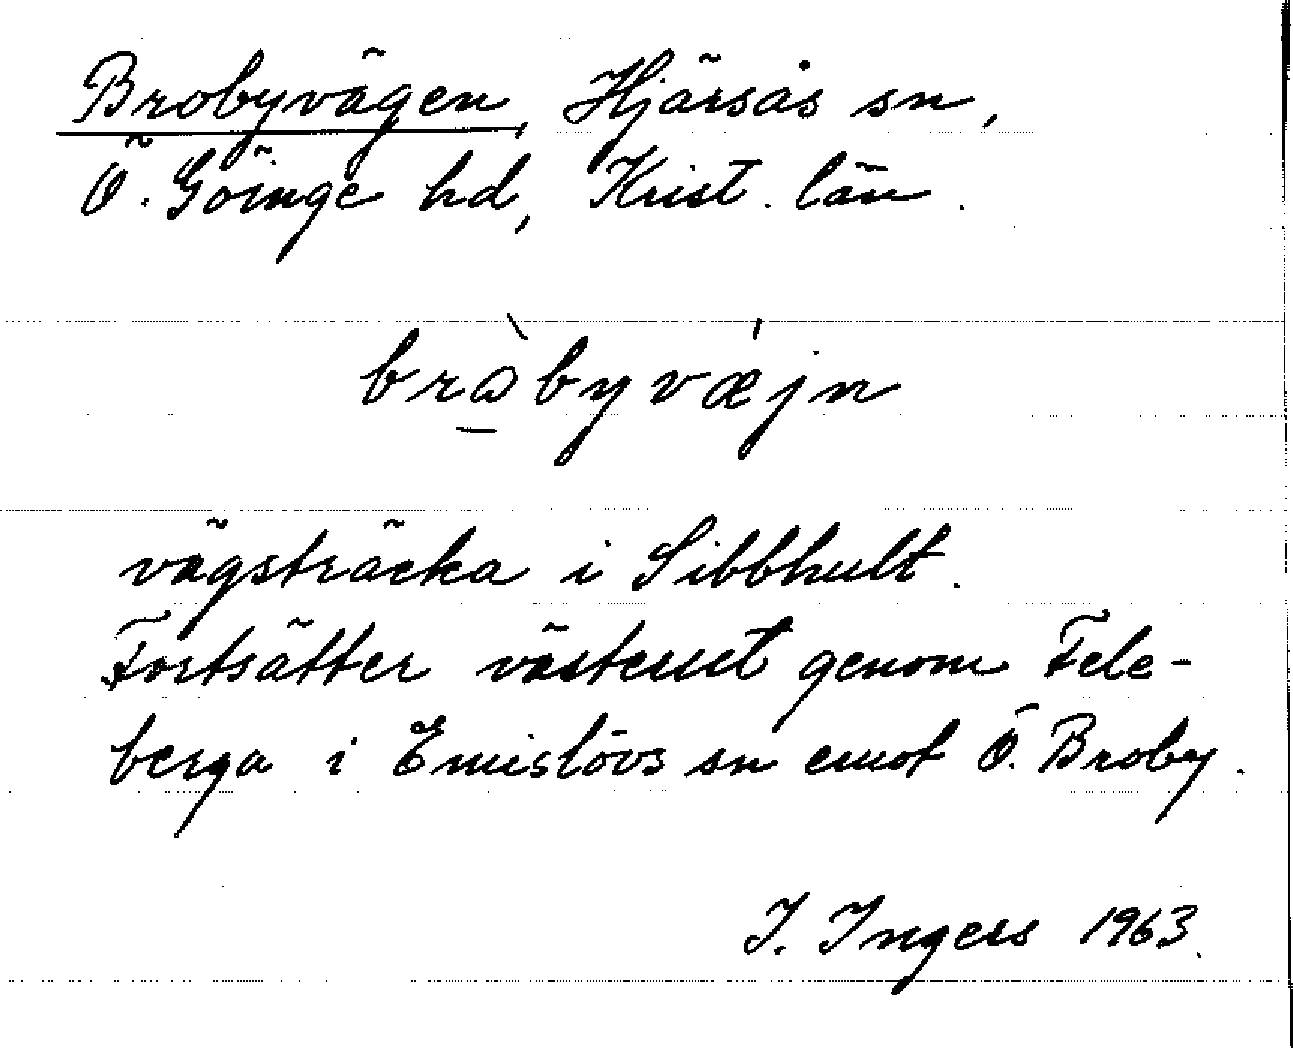 Brobyvägen, Hjärsås sn,
Ö. Göinge hd, Krist. län.
brɷ̠̀byvǽjn
vägsträcka i Sibbhult.
Fortsätter västerut genom Fele-
berga i Emislövs sn emot Ö. Broby.
I. Ingers 1963.